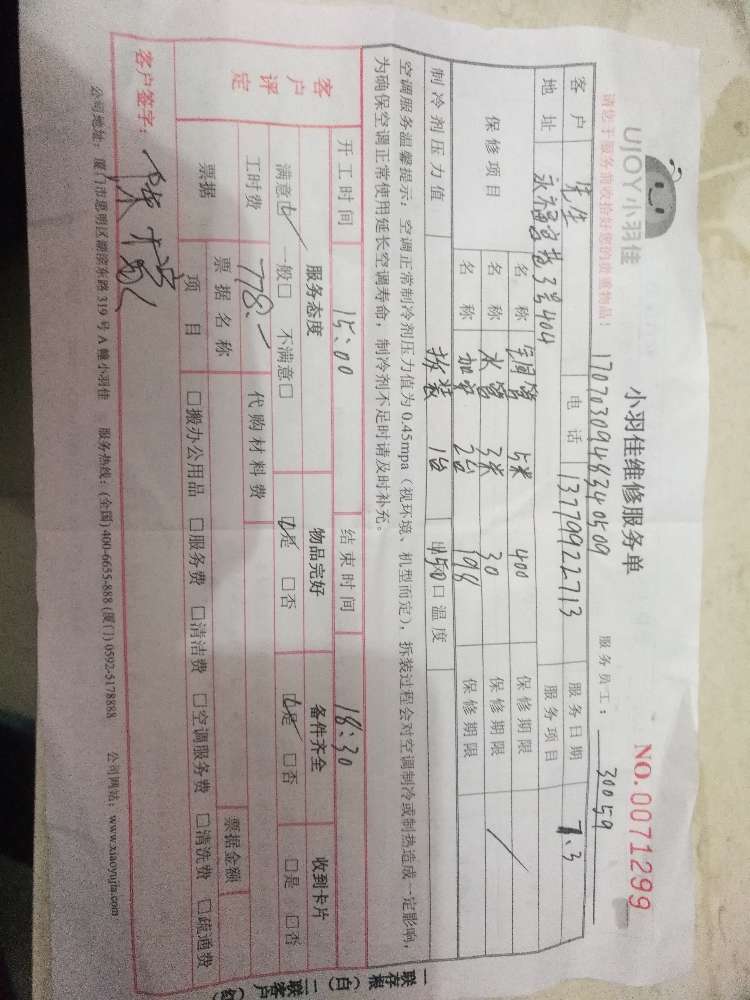 UJOY小羽佳
小羽佳维修服务单
NO.0071299
请您于服务前收拾好您的贵重物品!
1707030948340509
服务员工: 30059
客户 先生 电话 13779922713 服务日期 7.3
地址 3号404 服务项目
保修项目 名称 铜管 5米 400 保修期限
名称 水管 3米 30 保修期限 /
名称 加氟 2台 198 保修期限
制冷剂压力值 拆装 1台 150 出风口温度
空调服务温馨提示:空调正常制冷剂压力值为0.45mpa(视环境、机型而定),拆装过程会对空调制冷或制热造成一定影响,
为确保空调正常使用延长空调寿命,制冷剂不足时请及时补充。
开工时间 15:00 结束时间 18:30
客户评定 服务态度 物品完好 备件齐全 收到卡片
满意☑ 一般□ 不满意□ ☑是 □否 ☑是 □否 □是 □否
工时费 778.- 代购材料费
票据 票据名称 票据金额
项目 □搬办公用品 □服务费 □清洁费 □空调服务费 □清洗费 □疏通费
客户签字:
公司地址:厦门市思明区湖滨东路319号A幢小羽佳 服务热线:(全国)400-6655-888 (厦门)0592-5178888 公司网站:www.xiaoyujia.com
一联存根(白) 二联客户(红)